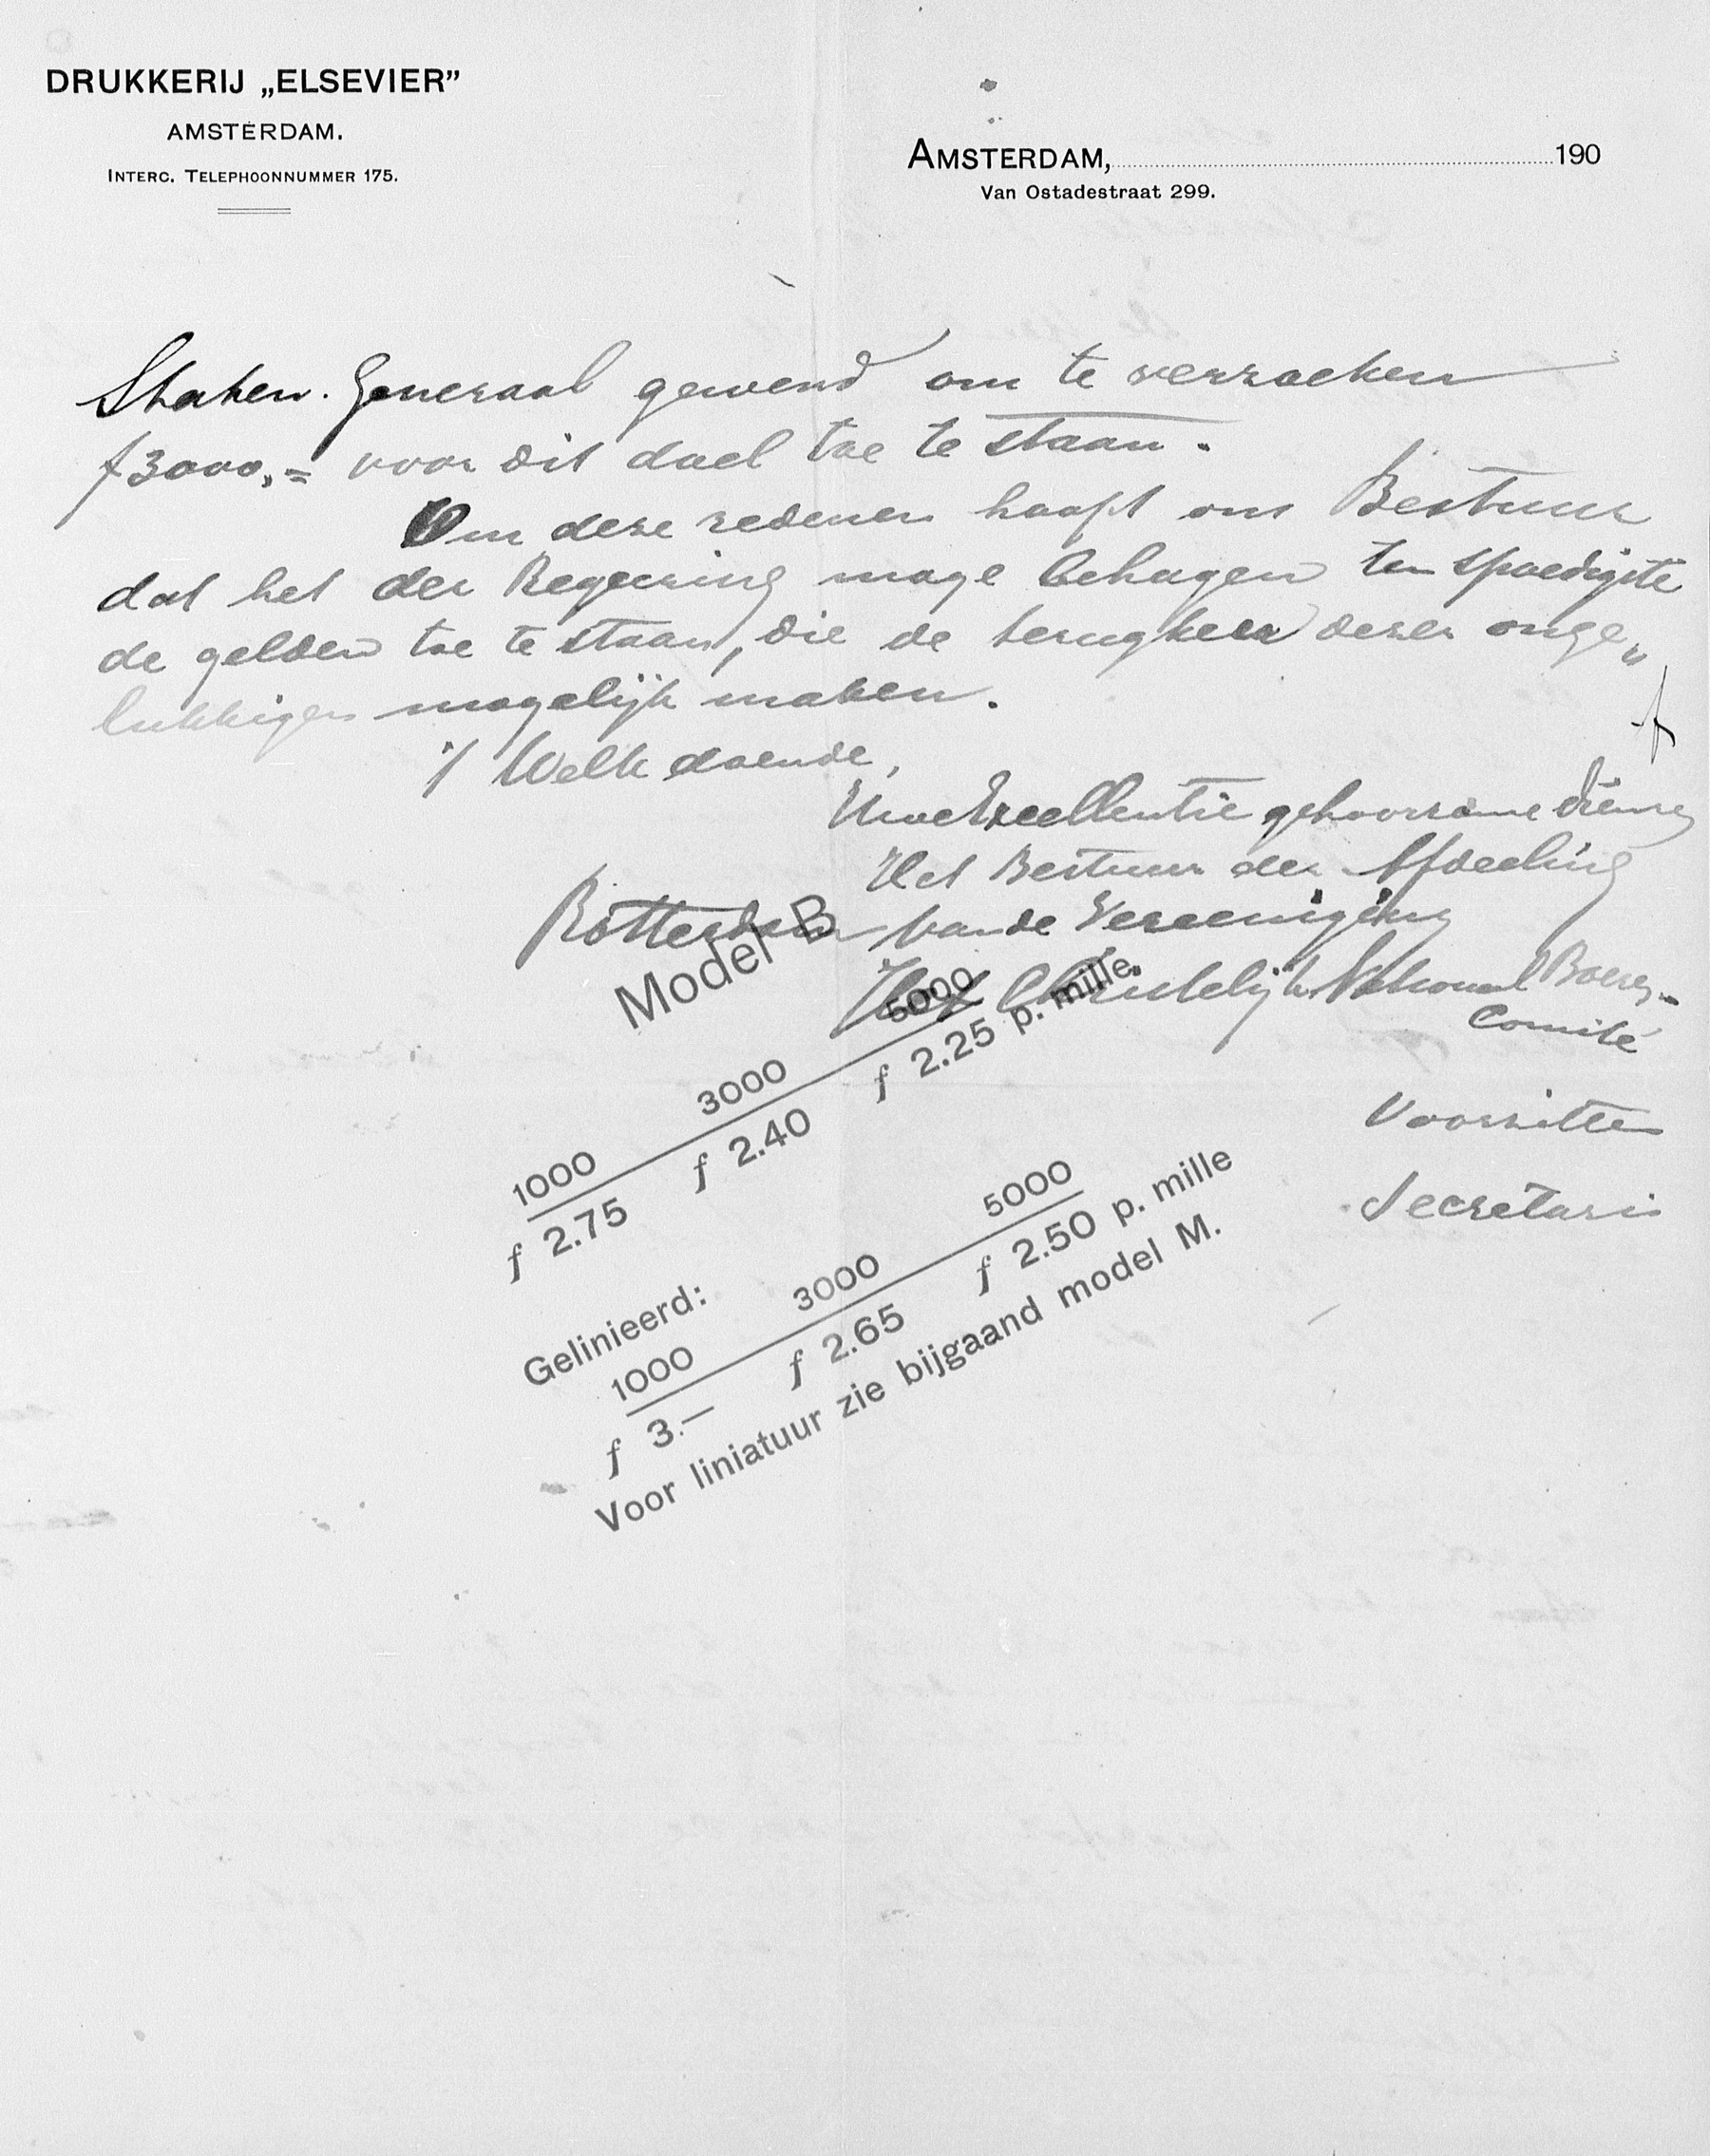 DRUKKERIJ „ELSEVIER”
AMSTERDAM.
INTERC. TELEPHOONNUMMER 175.
AMSTERDAM, 190
Van Ostadestraat 299.
Staten-Generaal gewend om te verzoeken
f 3000,= voor dit doel toe te staan.
Om deze redenen hoopt ons Bestuur
dat het der Regeering moge behagen ten spoedigste
de gelden toe te staan, die de terugkeer dezer onge„
lukkigen mogelijk maken.
't Welk doende,
Uwe Excellentie gehoorzame
Het Bestuur der Afdeeling
Rotterdam van de Vereeniging
Het Christelijk Nationaal Boeren-
Comité
Voorzitter
Secretaris
Model B
1000 3000 5000
f 2.75 f 2.40 f 2.25 p. mille
Gelinieerd:
1000 3000 5000
f 3.— f 2.65 f 2.50 p. mille
Voor liniatuur zie bijgaand model M.